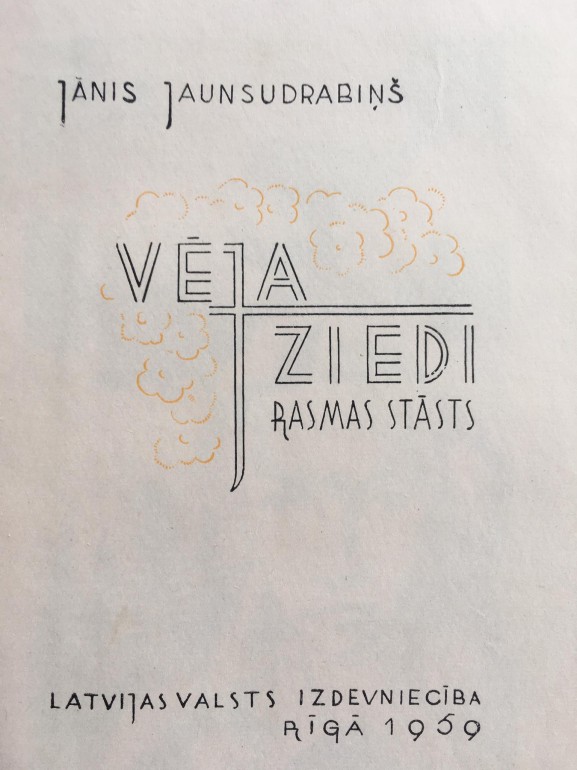 JĀNIS JAUNSUDRABIŅŠ
VĒJA
ZIEDI
RASMAS STĀSTS
LATVIJAS VALSTS IZDEVNIECĪBA
RĪGĀ 1959